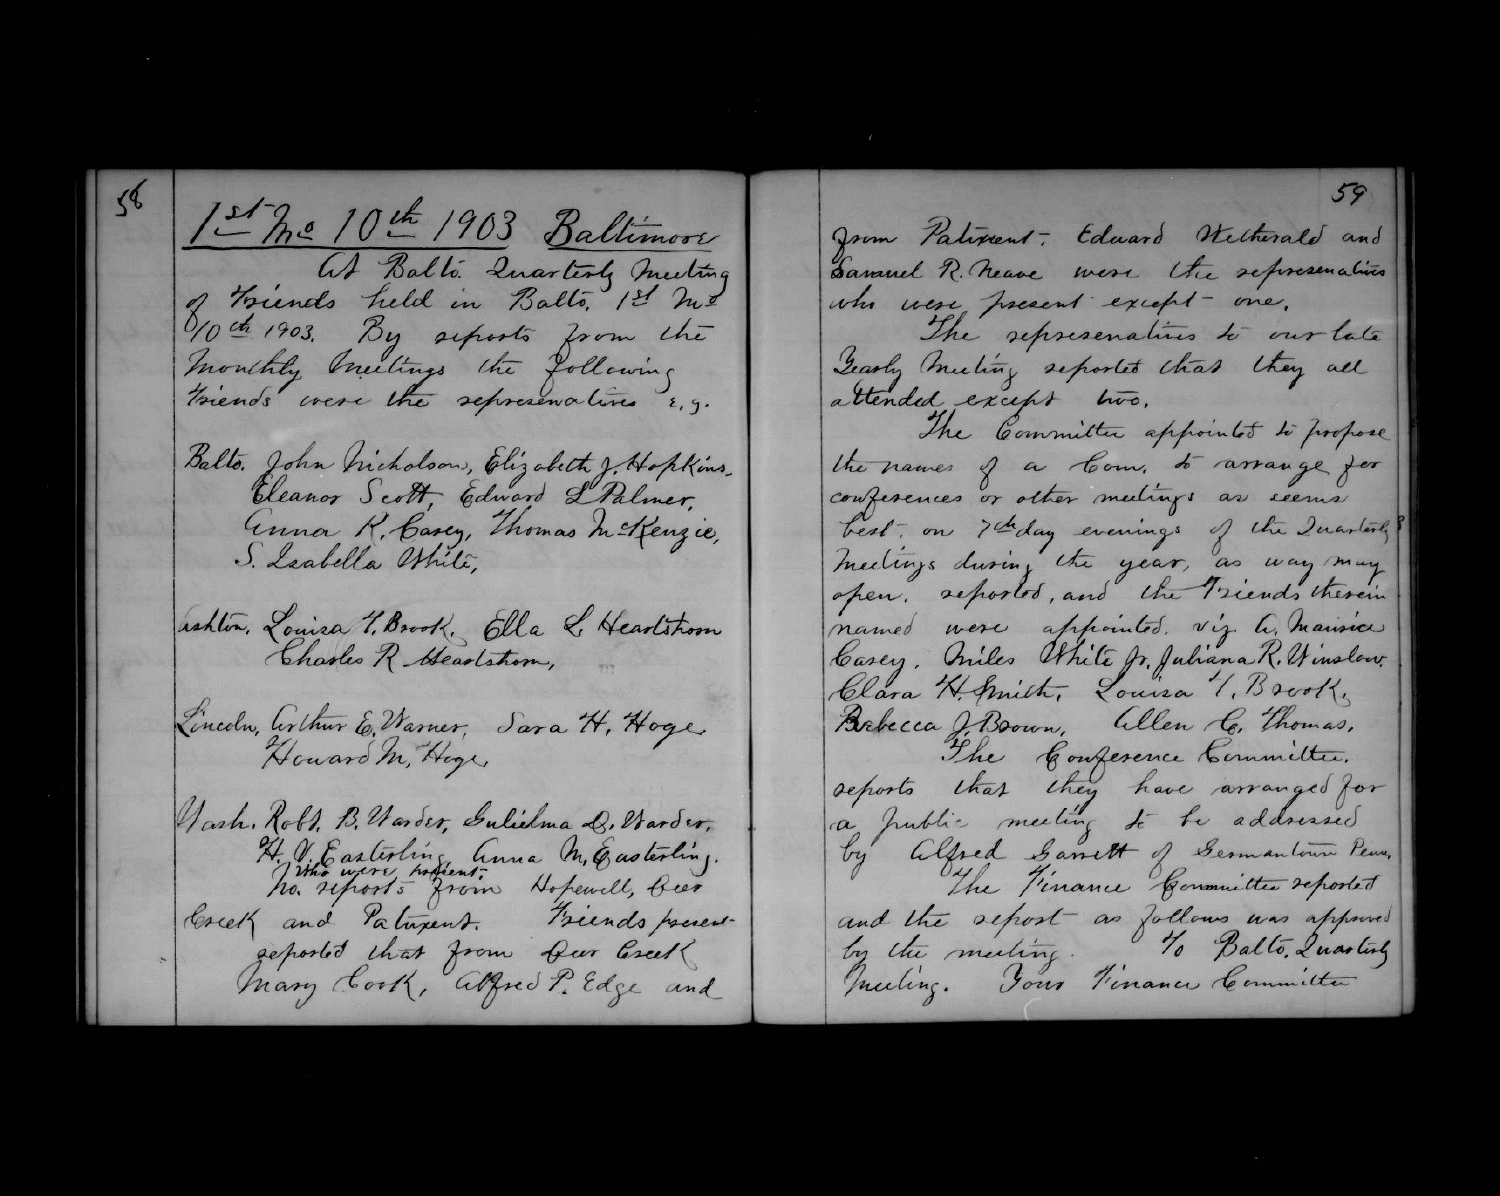 58
1st Mo 10th 1903 Baltimore
At Balto. Quarterly Meeting
of Friends held in Balto. 1st Mo
10th 1903. By reports from the
Monthly Meetings the following
Friends were the represenatives e.g.
Balto. John Nicholson, Elizabeth J. Hopkins,
Eleanor Scott, Edward L Palmer,
Anna K. Carey, Thomas McKenzie,
S. Isabella White,
Ashton, Louisa T. Brook, Ella L. Heartshorn
Charles R Heartshorn,
Lincoln, Arthur E. Warner, Sara H. Hoge
Howard M. Hoge,
Wash. Robt. B. Warder, Gulielma D. Warder,
H. V. Easterling, Anna M. Easterling.
who were present.
No. reports from Hopewell, Deer
Creek and Patuxent. Friends present
reported that from Deer Creek
Mary Cook, Alfred P. Edge and
59
from Patuxent. Edward Wetherald and
Samuel R. Neave were the represenatives
who were present except one.
The represenatives to our late
Yearly Meeting reported that they all
attended except two.
The Committee appointed to propose
the names of a Com. to arrange for
conferences or other meetings as seems
best, on 7th day evenings of the Quarterly
Meetings during the year, as way may
open, reported, and the Friends therein
named were appointed. viz A. Maurice
Carey, Miles White Jr, Juliana R. Winslow.
Clara H. Smith, Louisa T. Brook,
Rebecca J. Brown, Allen C. Thomas.
The Conference Committee.
reports that they have arranged for
a public meeting to be addressed
by Alfred Garrett of Germantown Penn.
The Finance Committee reported
and the report as follows was approved
by the meeting. To Balto. Quarterly
Meeting. Your Finance Committee